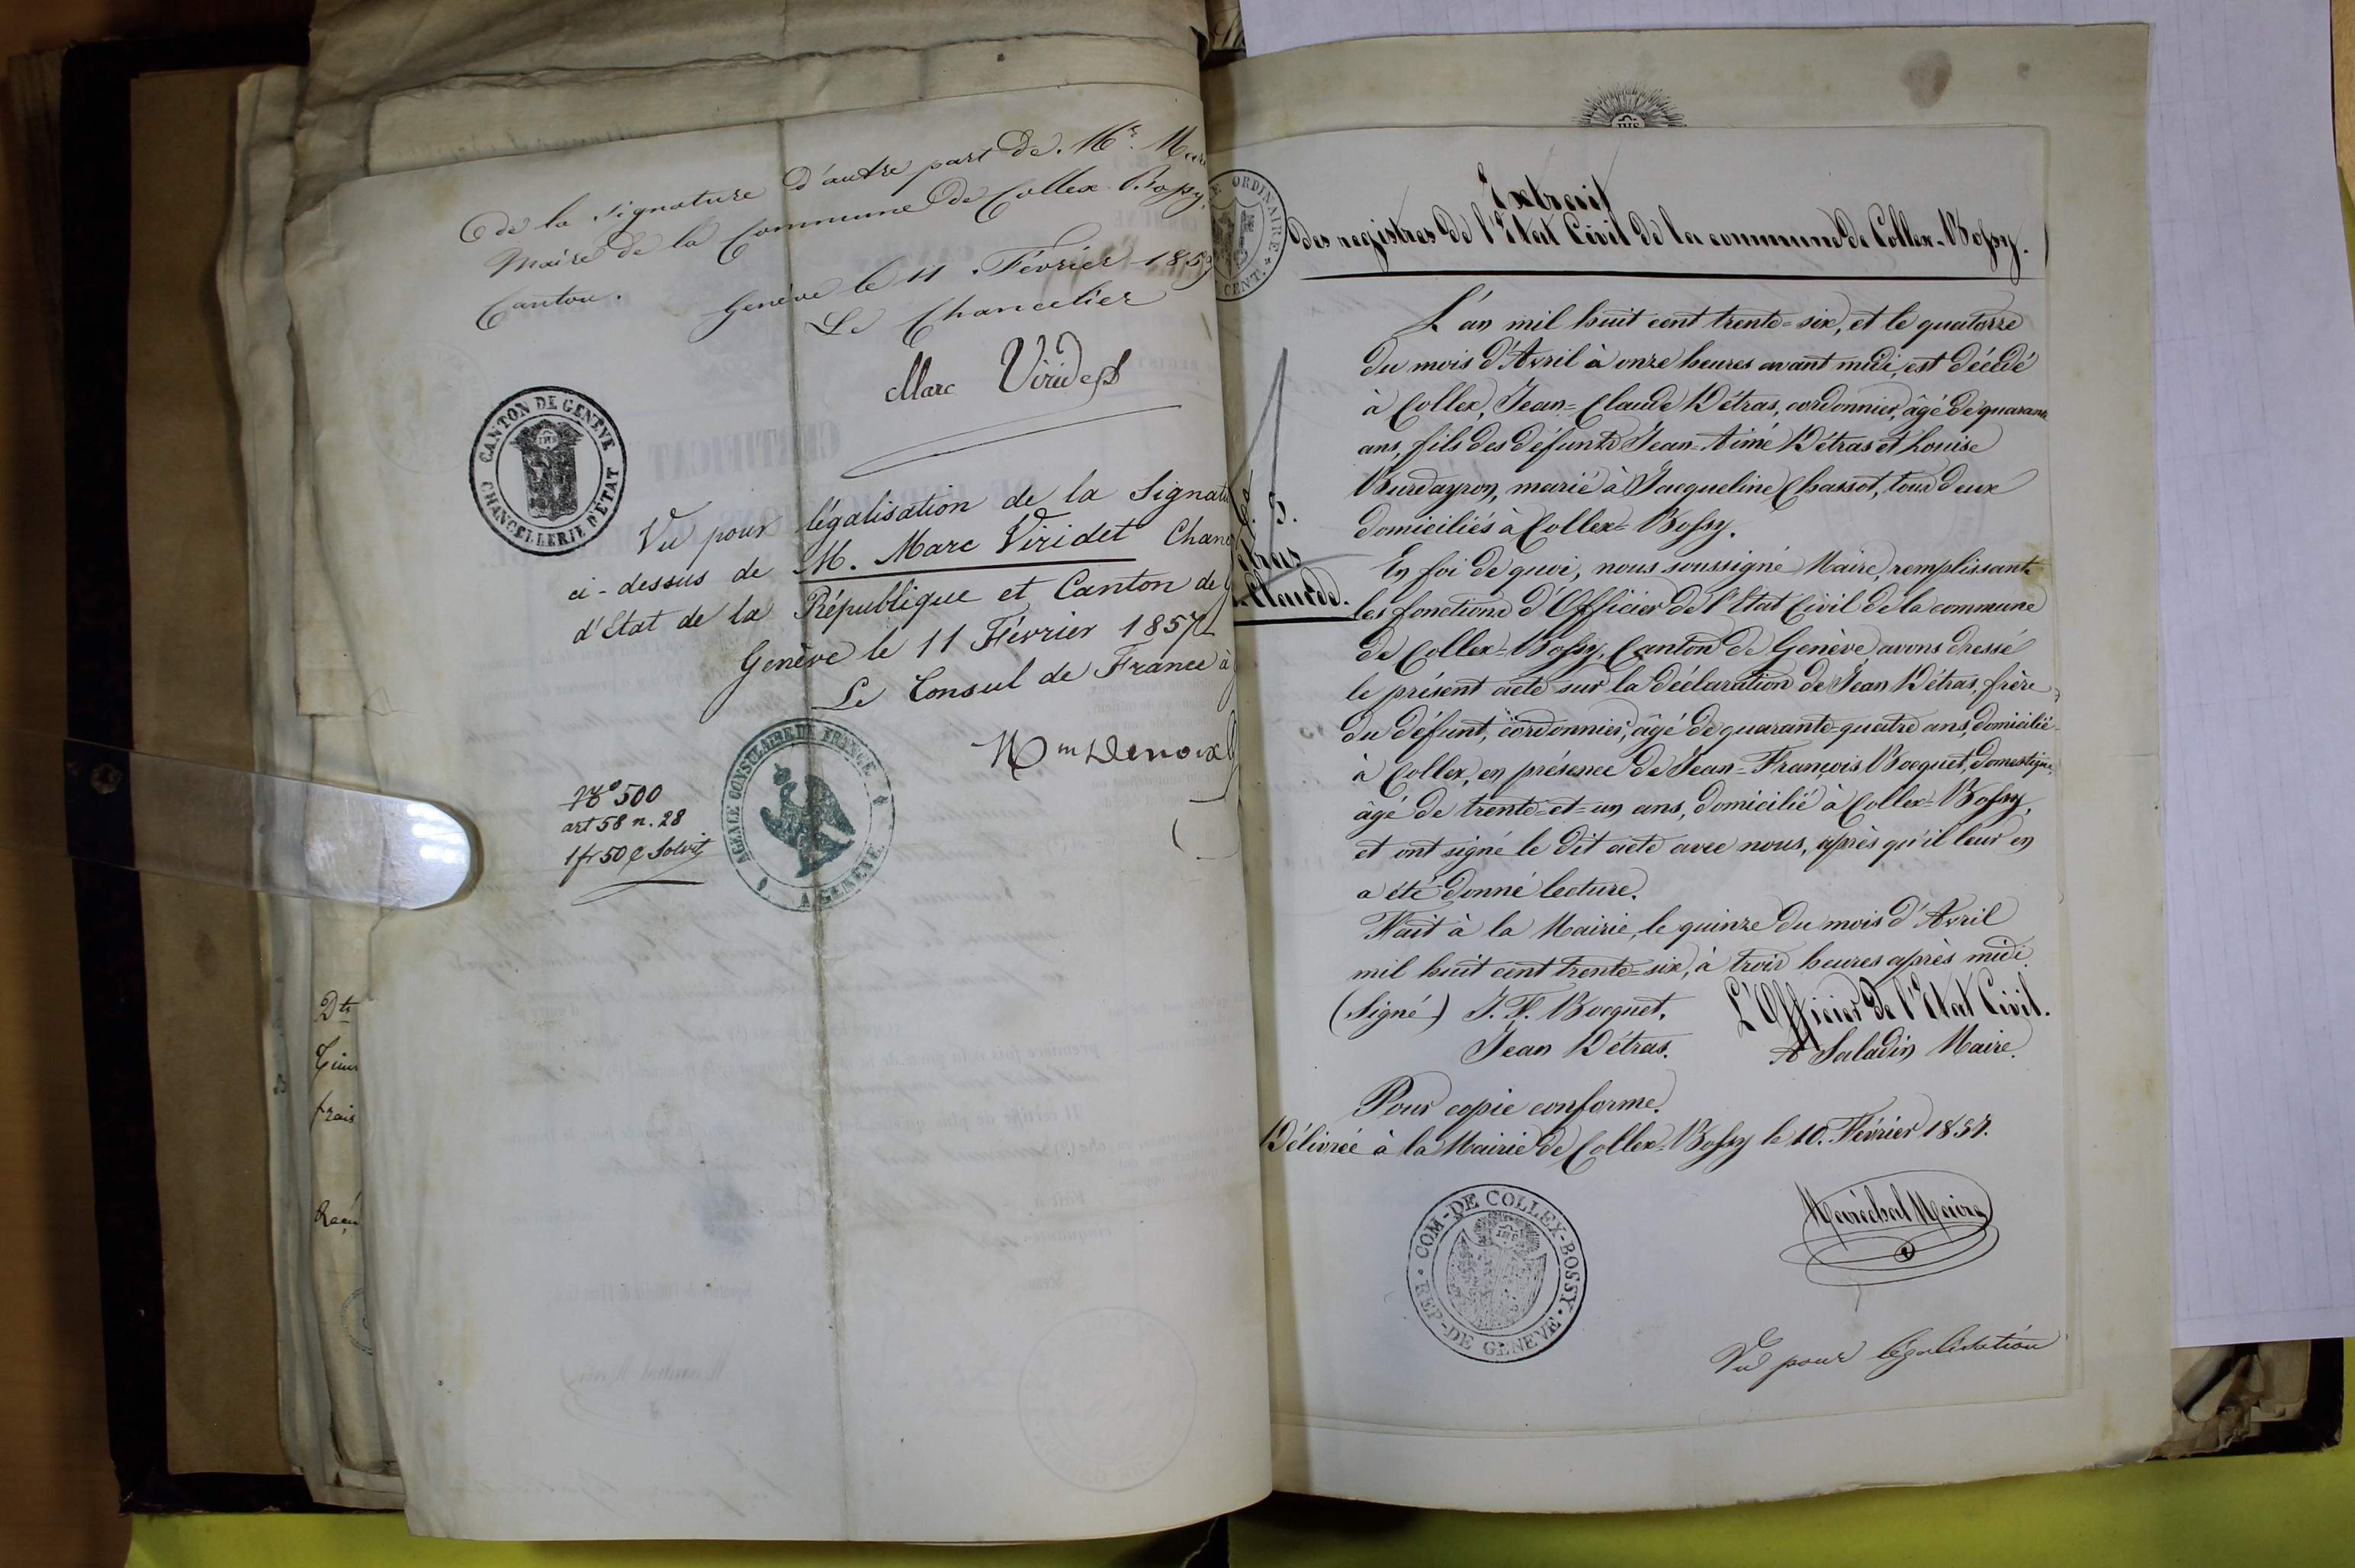 de la signature d'autre part de Mr. Mar
Maire de la Commune de Collex-Bossy,
Canton.
Genève le 11 Février 1857
Le Chancelier
Marc Viridet
CANTON DE GENÈVE
CHANCELLERIE D'ÉTAT
Vu pour légalisation de la Signat
ci-dessus de M. Marc Viridet Chan
d'Etat de la République et Canton de
Genève le 11 Février 1857
Le Consul de France à
AGENCE CONSULAIRE DE FRANCE
A GENÈVE
No 500
art 58 n. 28
1 fr 50 c Solvit
Dts
frais
ORDINAIRE
CENT.
IHS
Extrait
des registres de l'Etat Civil de la commune de Collex-Bossy.
L'an mil huit cent trente-six, et le quatorze
du mois d'Avril à onze heures avant midi, est décédé
à Collex, Jean-Claude Détras, cordonnier, âgé de quarante
ans, fils des défunts Jean-Aimé Détras et Louise
Burdayron, marié à Jacqueline Chassot, tous deux
domiciliés à Collex-Bossy.
En foi de quoi, nous soussigné Maire, remplissant
les fonctions d'Officier de l'Etat Civil de la commune
de Collex-Bossy, Canton de Genève avons dressé
le présent acte sur la déclaration de Jean Détras, frère
du défunt, cordonnier, âgé de quarante-quatre ans, domicilié
à Collex, en présence de Jean-François Bocquet, domestique,
âgé de trente-et-un ans, domicilié à Collex-Bossy,
et ont signé le dit acte avec nous, après qu'il leur en
a été donné lecture.
Fait à la Mairie, le quinze du mois d'Avril
mil huit cent trente-six, à trois heures après midi.
(Signé) J. F. Bocquet. L'Officier de l'Etat Civil.
Jean Détras. A Saladin Maire.
Pour copie conforme.
Délivrée à la Mairie de Collex-Bossy le 10. Février 1857.
Maréchal Maire
COM-DE COLLEX-BOSSY
REP-DE GENEVE
Vu pour légalisation
tras
Claude.